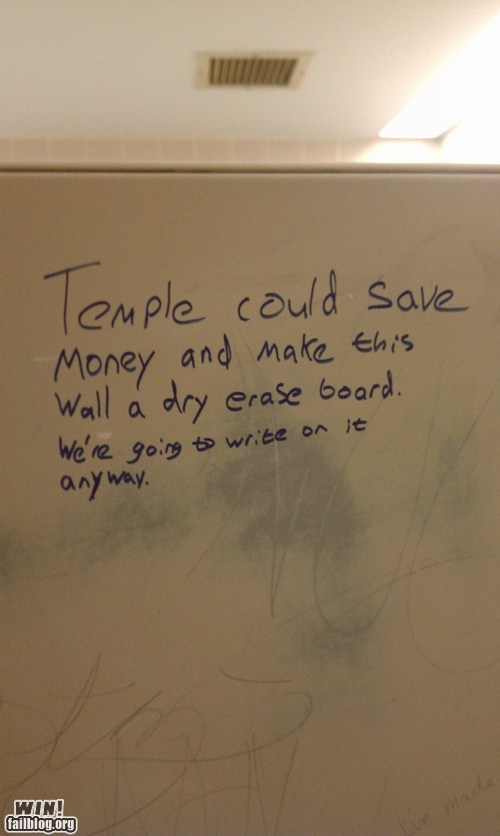 Temple could save
Money and make this
Wall a dry erase board.
We're going to write on it
anyway.
I've made
WIN!
failblog.org